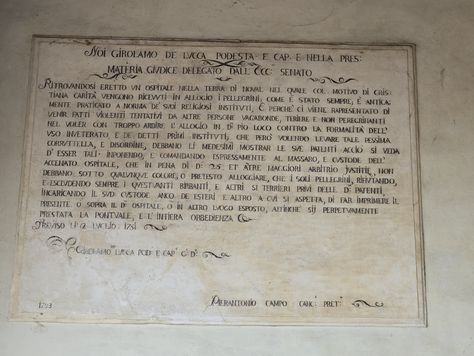 NOI GIROLAMO DE LVCCA PODESTA E CAP: E NELLA PRES:
MATERIA GIVDICE DELEGATO DALL' ECC: SENATO
RITROVANDOSI ERETTO VN OSPITALE NELLA TERRA DI NOVAL NEL QVALE COL MOTIVO DI CRIS=
TIANA CARITÀ VENGONO RICEVVTI IN ALLOGIO I PELLEGRINI, COME È STATO SEMPRE, E ANTICA=
MENTE PRATICATO A NORMA DE' SVOI RELIGIOSI INSTITVTI, E PERCHE CI VIENE RAPRESENTATO DI
VENIR FATTI VIOLENTI TENTATIVI DA ALTRE PERSONE VAGABONDE, TERIERE E NON PEREGRINANTI
NEL VOLER CON TROPPO ARDIRE L'ALLOGIO IN D: PIO LOCO CONTRO LA FORMALITÀ DELL'
VSO INVETERATO E DE DETTI PRIMI INSTITVTI, CHE PERÒ VOLENDO LEVARE TALE PESSIMA
CORVTTELLA, E DISORDINE, DEBANO LI MEDESIMI MOSTRARE LE SVE PATENTI ACCIÒ SI VEDA
D' ESSER TALI: IMPONENDO, E COMANDANDO ESPRESSAMENTE AL MASSARO, E CVSTODE DELL'
ACCENATO OSPITALE, CHE IN PENA DI D: 25 ET ALTRE MAGGIORI ARBITRIO IVSTITIE, NON
DEBBANO SOTTO QVALVNQVE COLORE, O PRETESTO ALLOGGIARE, CHE I SOLI PELLEGRINI, RIFIUTANDO,
E ESCLVDENDO SEMPRE I QVESTVANTI BIRBANTI, E ALTRI SI TERRIERI PRIVI DELLE D: PATENTI,
INCARICANDO IL SVO CVSTODE ANCO DE ESTERI E ALTRO A CVI SI ASPETTA, DI FAR IMPRIMERE IL
PRESENTE O SOPRA IL D: OSPITALE, O IN ALTRO LVOGO ESPOSTO, AFFINCHÈ SIJ PERPETVAMENTE
PRESTATA LA PONTVALE, E L'INTIERA OBBEDIENZA
TREVISO LI 12 LVGLIO 1751
GIROLAMO LVCCA POD: E CAP: G: D:
1793
PIERANTONIO CAMPO CANC: PRET: